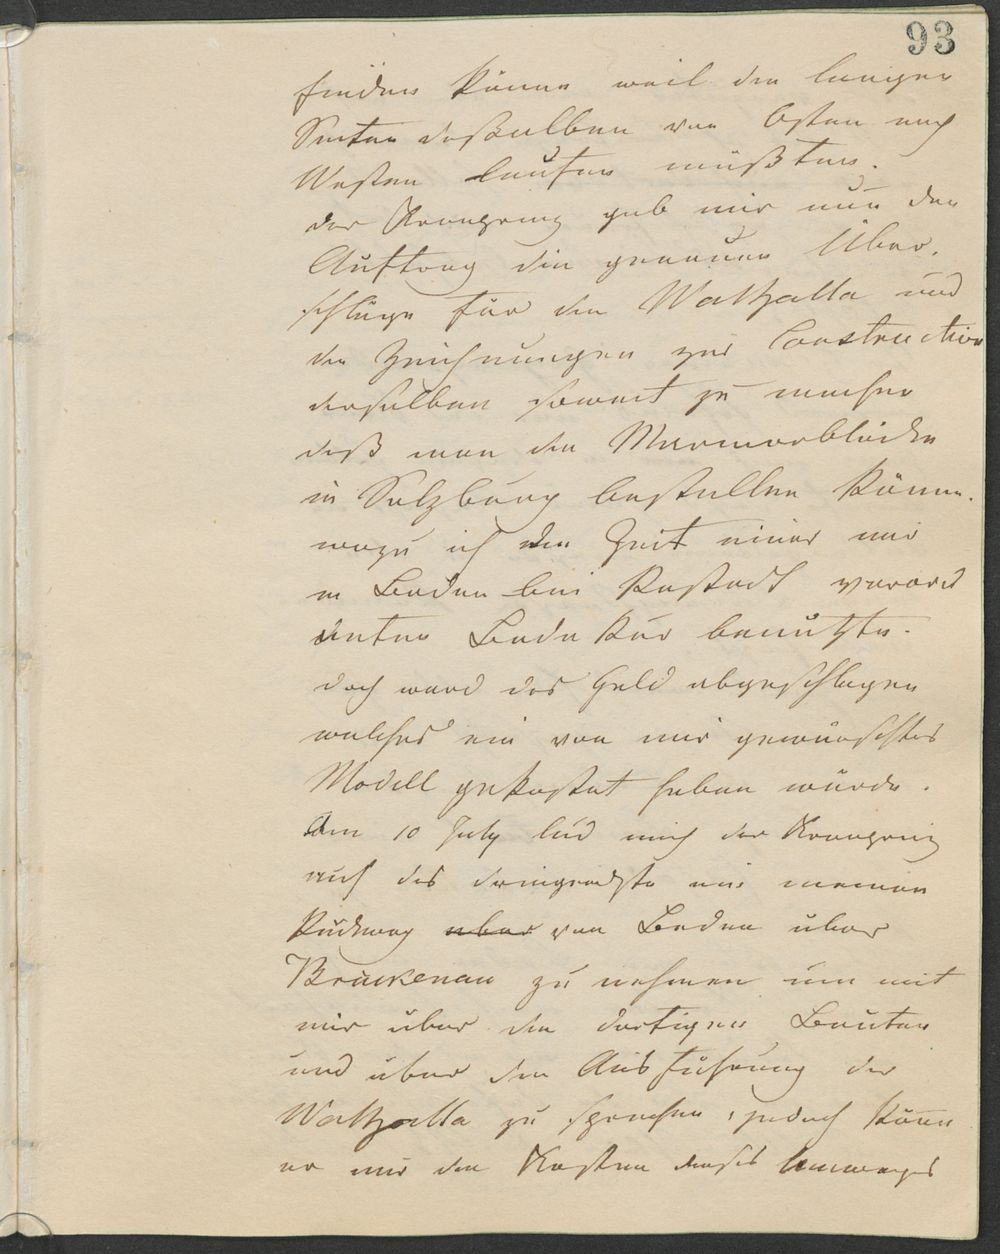 93
finden könne weil die langen
Seiten desselben von Osten nach
Westen laufen müßten.
der Kronprinz gab mir nun den
Auftrag die genauen Über,
schläge für die Walhalla und
die Zeichnungen zur Construction
derselben soweit zu machen
daß man die Marmorblöcke
in Salzburg bestellen könne.
wozu ich die Zeit einer mir
in Baden bei Rastadt verord
neten Bade kur benutzte.
doch ward das Geld abgeschlagen
welches ein von mir gewünschtes
Modell gekostet haben würde.
Am 10 July lud mich der Kronprinz
auf das dringendste ein meinen
Rückweg über von Baden über
Brückenau zu nehmen um mit
mir über die dortigen Bauten
und über die Ausführung der
Walhalla zu sprechen, jedoch könne
er mir die Kosten dieses Umweges